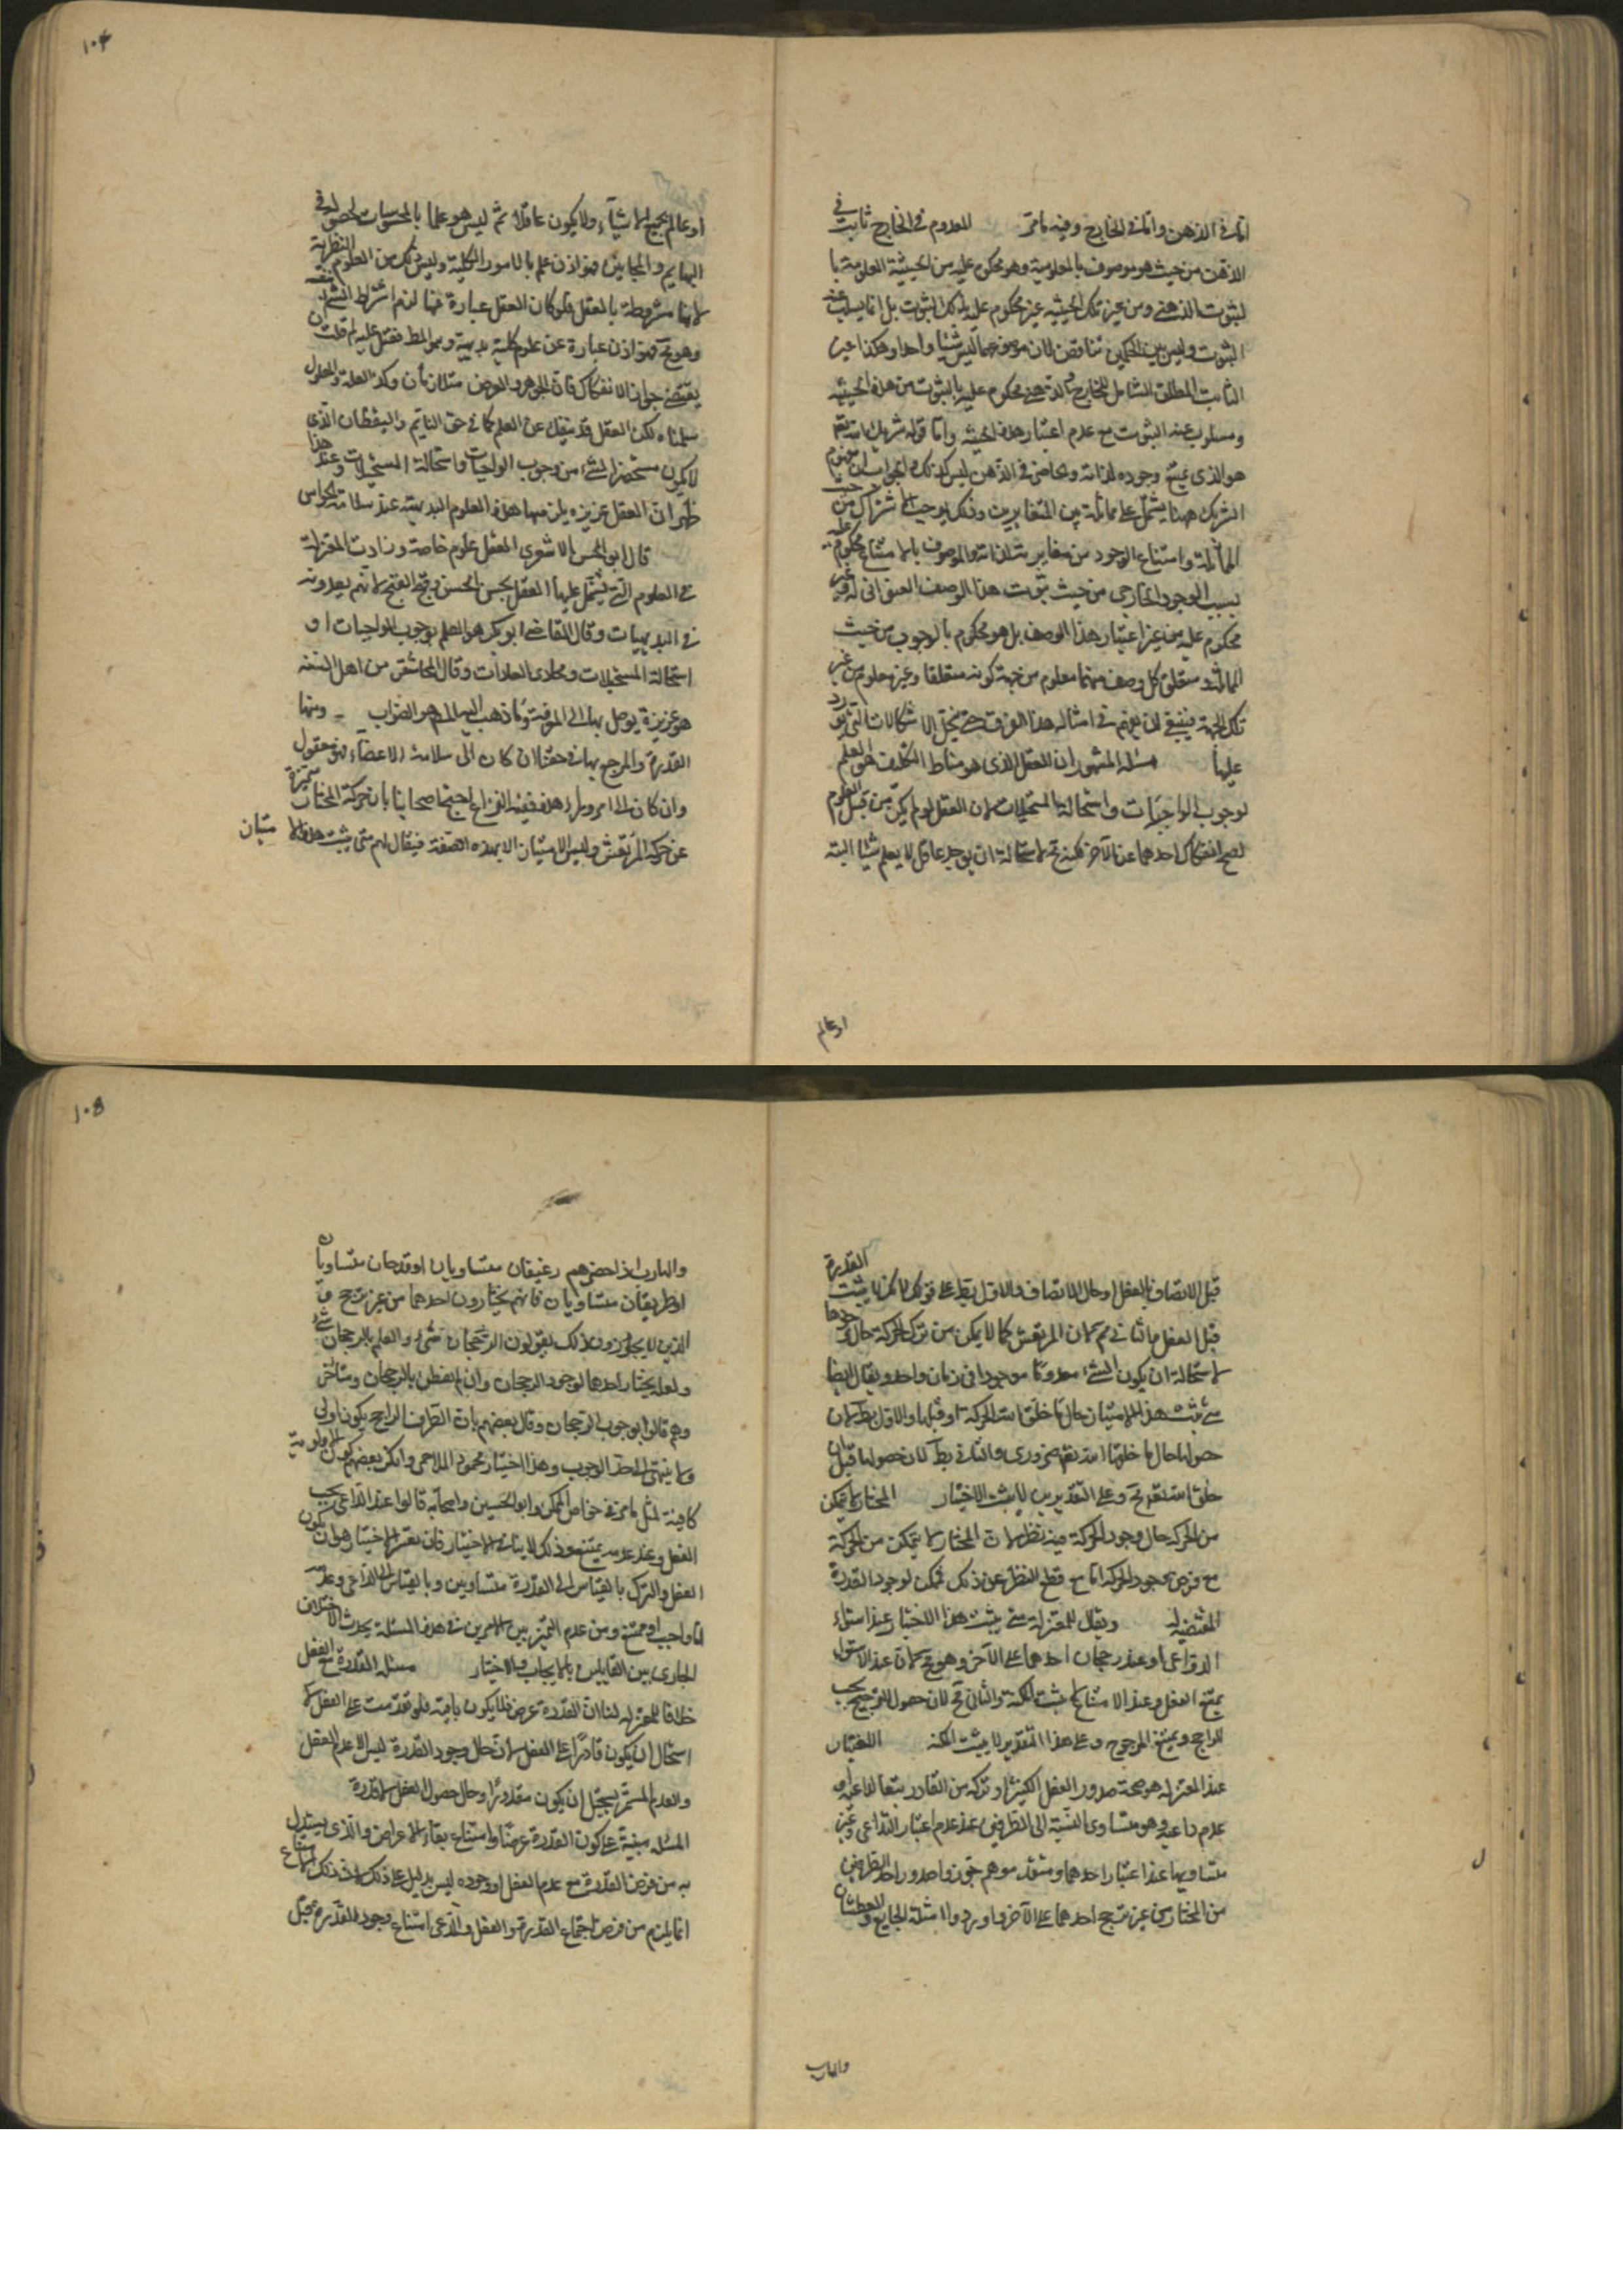 اما في الذهن واما في الخارج وفيه ما مر المعدوم في الخارج ثابت في
الذهن من حيث هو موصوف بالمعلومية وهو محكوم عليه من الحيثية المعلومية با
لثبوت الذهني ومن غير تلك الحيثية غير محكوم عليه بذلك الثبوت بل انما يسلب عنه
الثبوت وليس بين الحكمين تناقض لان موضوعهما ليس شيئا واحدا وهكذا غير
الثابت المطلق الشامل للخارج والذهني محكوم عليه بالثبوت من هذه الحيثية
ومسلوب عنه الثبوت مع عدم اعتبار هذه الحيثية واما قوله شريك الله تعالى
هو الذي يمتنع وجوده لذاته والحاضر في الذهن ليس كذلك فالجواب ان مفهوم
الشريك هنا يشتمل على مماثلة بين المتغايرين وذلك يوجب الاشتراك من حيث
المماثلة وامتناع الوجود من مغايرته لذاته والموصوف بالامتناع محكوم عليه
بسبب الوجود الخارجي من حيث ثبوت هذا الوصف العنواني له وغير
محكوم عليه من غير اعتبار هذا الوصف بل هو محكوم بالوجوب من حيث
المماثلة ومتعلق كل وصف منهما معلوم من جهة كونه متعلقا وغير معلوم من غير
تلك الجهة فينبغي ان يفهم في امثاله هذا الفرق حتى ينحل الاشكالات التي تورد
عليها مسئلة المشهور ان العقل الذي هو مناط التكليف هو العلم
لوجوب الواجبات واستحالة المستحيلات لان العقل لو لم يكن من قبيل العلوم
لصح انفكاك احدهما عن الآخر لكنه مح لاستحالة ان يوجد عاقل لا يعلم شيئا البتة
او عالم
١٠٤
او عالم بجميع الاشياء ولا يكون عاقلا ثم ليس هو علما بالمحسوسات لحصوله في
البهايم والمجانين فهو اذن علم بالامور الكلية وليس ذلك من العلوم النظرية
لانها مشروطة بالعقل فلو كان العقل عبارة عنها لزم اشتراط الشئ بنفسه
وهو مح فهو اذن عبارة عن علوم كلية بديهية وهو المط فقيل عليه لم قلت ان
يقتضى جواز الانفكاك فان الجوهر والعرض متلازمان وكذا العلة والمعلول
سلمناه لكن العقل قد ينفك عن العلم كما في حق النايم واليقظان الذي
لا يكون مستحضرا لشئ من وجوب الواجبات واستحالة المستحيلات وعند هذا
ظهر ان العقل غريزة يلزمها هذه العلوم البديهية عند سلامة الحواس
قال ابو الحسن الاشعرى العقل علوم خاصة وزادت المعتزلة
في العلوم التي يشتمل عليها العقل بحسن الحسن وقبح القبيح لانهم يعدونه
في البديهيات وقال القاضي ابو بكر هو العلم بوجوب الواجبات او
استحالة المستحيلات ومجارى العادات وقال المحاسبي من اهل السنة
هو غريزة يوصل بها الى المعرفة وما ذهب اليه المص هو الصواب ومنها
القدرة والمرجع بها في حقنا ان كان الى سلامة الاعضاء فهو معقول
وان كان الى امر وراء هذه ففيه النزاع احتج اصحابنا بان حركة المختار متميزة
عن حركة المرتعش وليس الامتياز الا بهذه الصفة فيقال لهم متى يثبت هذا الامتياز
قبل الاتصاف بالفعل او حال الاتصاف والاول يبطل على قولكم لانكم لا يثبت القدرة
قبل الفعل والثاني مح لان المرتعش كما لا يمكن من ترك الحركة حال وجودها
لاستحالة ان يكون الشئ معدوما موجودا في زمان واحد ويقال ايضا
متى يثبت هذا الامتياز حال ما خلق الله الحركة او قبلها والاول بط لان
حصولها حال ما خلقها الله تعالى ضرورى والثاني بط لان حصولها قبل ان
خلق الله تعالى مح وعلى التقديرين لا يثبت الاختيار المختار لا يتمكن
من الحركة حال وجود الحركة فيه نظر لان المختار لا يتمكن من الحركة
مع فرض وجود الحركة اما مع قطع النظر عن ذلك فممكن لوجود القدرة
المقتضية له ويقال للمعتزلة متى يثبت هذا الاختيار عند استواء
الدواعى او عند رجحان احدهما على الآخر وهو مح لان عند الاستواء
يمتنع الفعل وعند الامتناع لا يثبت المكنة والثاني مح لان حصول الترجيح يجب
الراجح ويمتنع المرجوح وعلى هذا التقدير لا يثبت المكنة الاختيار
عند المعتزلة هو صحة صدور الفعل الكثير او تركه من القادر تبعا لداعيه او
عدم داعيه وهو متساوى النسبة الى الطرفين عند عدم اعتبار الداعى وغير
متساويها عند اعتبار احدهما ومتقدموهم جوزوا صدور احد الطرفين
من المختار من غير ترجيح احدهما على الآخر واوردوا امثلة الجايع والعطشان
والهارب
١٠٥
والهارب اذا حضرهم رغيفان متساويان او قدحان متساويان
او طريقان متساويان فانهم يختارون احدهما من غير ترجيح و
الذين لا يجوزون ذلك يقولون الرجحان شئ والعلم بالرجحان شئ
ولعله يختار احدهما لوجود الرجحان وان لم يفطن بالرجحان ومتأخر
وهم قالوا بوجوب الرجحان وقال بعضهم بان الطرف الراجح يكون اولى
ولا ينتهى الى حد الوجوب وهذا اختيار محمود الملاحمى وانكر بعضهم كون الاولوية
كافية لمثل ما مر في خواص الممكن وابو الحسين واصحابه قالوا عند الداعى يجب
الفعل وعند عدمه يمتنع وذلك لا ينافى الاختيار فان تفسير الاختيار هو ان يكون
الفعل والترك بالقياس الى القدرة متساويين وبالقياس الى الداعى وعدمه
اما واجب او ممتنع ومن عدم التميز بين الامرين في هذه المسئلة يحدث الاختلاف
الجارى بين القايلين بالايجاب والاختيار مسئلة القدرة مع الفعل
خلافا للمعتزلة لنا ان القدرة عرض فلا يكون باقية فلو تقدمت على الفعل لا
استحال ان يكون قادرا على الفعل لان حال وجود القدرة ليس الا عدم الفعل
والعدم المستمر يستحيل ان يكون مقدورا وحال حصول الفعل لا قدرة
المسئلة مبنية على كون القدرة عرضا وامتناع بقاء الاعراض والذى يستدل
به من فرض القدرة مع عدم الفعل او وجوده ليس بدليل على ذلك لان ذلك امتناع
انما يلزم من فرض اجتماع القدرة والفعل والذى امتناع وجود القدرة قبل